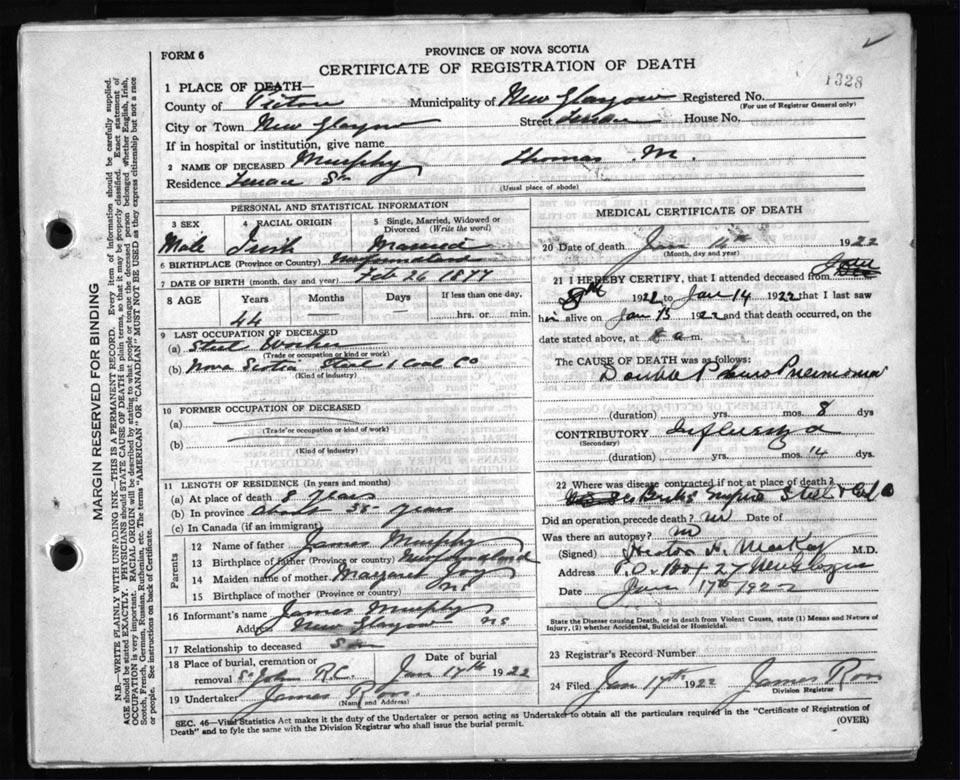 FORM 6
PROVINCE OF NOVA SCOTIA
CERTIFICATE OF REGISTRATION OF DEATH
1328
1 PLACE OF DEATH—
County of Pictou Municipality of New Glasgow Registered No.
(For use of Registrar General only)
City or Town New Glasgow Street House No.
If in hospital or institution, give name
2 NAME OF DECEASED Murphy Thomas M.
Residence
(Usual place of abode)
PERSONAL AND STATISTICAL INFORMATION
3 SEX 4 RACIAL ORIGIN 5 Single, Married, Widowed or Divorced (Write the word)
Male Irish Married
6 BIRTHPLACE (Province or Country) Newfoundland
7 DATE OF BIRTH (month, day and year) Feb 26 1877
8 AGE Years Months Days If less than one day,
44 — — hrs. or min.
9 LAST OCCUPATION OF DECEASED
(a) Steel Worker
(Trade or occupation or kind or work)
(b) Nova Scotia Steel & Coal Co
(Kind of industry)
10 FORMER OCCUPATION OF DECEASED
(a)
(Trade or occupation or kind of work)
(b)
(Kind of industry)
11 LENGTH OF RESIDENCE (In years and months)
(a) At place of death 8 years
(b) In province About 35 years
(c) In Canada (if an immigrant)
Parents
12 Name of father James Murphy
13 Birthplace of father (Province or Country) Newfoundland
14 Maiden name of mother Margaret
15 Birthplace of mother (Province or country) NS
16 Informant's name James Murphy
Address New Glasgow NS
17 Relationship to deceased Son
18 Place of burial, cremation or removal St John R.C. Date of burial Jan 17th 1922
19 Undertaker James Ross
(Name and Address)
MEDICAL CERTIFICATE OF DEATH
20 Date of death Jan 14th 1922
(Month, day and year)
21 I HEREBY CERTIFY, that I attended deceased from
8th 1922 to Jan 14 1922 that I last saw
him alive on Jan 13 1922 and that death occurred, on
date stated above, at 8 a m.
The CAUSE OF DEATH was as follows:
Double Pneumonia
(duration) yrs. mos. 8 dys
CONTRIBUTORY Influenza
(Secondary)
(duration) yrs. mos. 14 dys.
22 Where was disease contracted if not at place of death?
Did an operation precede death? no Date of
Was there an autopsy? no
(Signed) Hector H. MacKay M.D.
Address P.O. Box 27 New Glasgow
Date Jan 17th 1922
State the Disease causing Death, or in death from Violent Causes, state (1) Means and Nature of Injury, (2) whether Accidental, Suicidal or Homicidal.
23 Registrar's Record Number
24 Filed Jan 17th 1922 James Ross
Division Registrar
SEC. 46—Vital Statistics Act makes it the duty of the Undertaker or person acting as Undertaker to obtain all the particulars required in the "Certificate of Registration of
Death" and to fyle the same with the Division Registrar who shall issue the burial permit.
(OVER)
MARGIN RESERVED FOR BINDING
N.B.—WRITE PLAINLY WITH UNFADING INK—THIS IS A PERMANENT RECORD. Every item of information should be carefully supplied.
AGE should be stated EXACTLY. PHYSICIANS should STATE CAUSE OF DEATH in plain terms, so that it may be properly classified. Exact statement of
OCCUPATION is very important. RACIAL ORIGIN will be described by stating to what people or tongue the deceased person belonged whether English, Irish,
Scotch, French, German, Russian, Ruthenian, etc. The terms "AMERICAN" or "CANADIAN" MUST NOT BE USED as they express citizenship but not a race
or people. See instructions on back of Certificate.